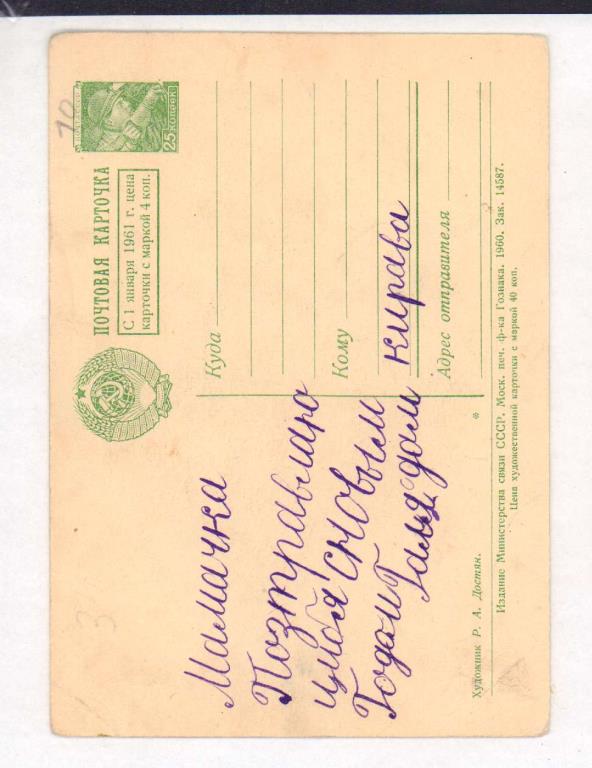 ПОЧТА СССР
25 КОПЕЕК
ПОЧТОВАЯ КАРТОЧКА
С 1 января 1961 г. цена
карточки с маркой 4 коп.
10
3
Куда
Кому
Адрес отправителя
Мамачка
Позтравляю
цибя сновым
Годом
Галя дом кирава
*
Художник Р. А. Достян.
Издание Министерства связи СССР. Моск. печ. ф-ка Гознака. 1960. Зак. 14587.
Цена художественной карточки с маркой 40 коп.